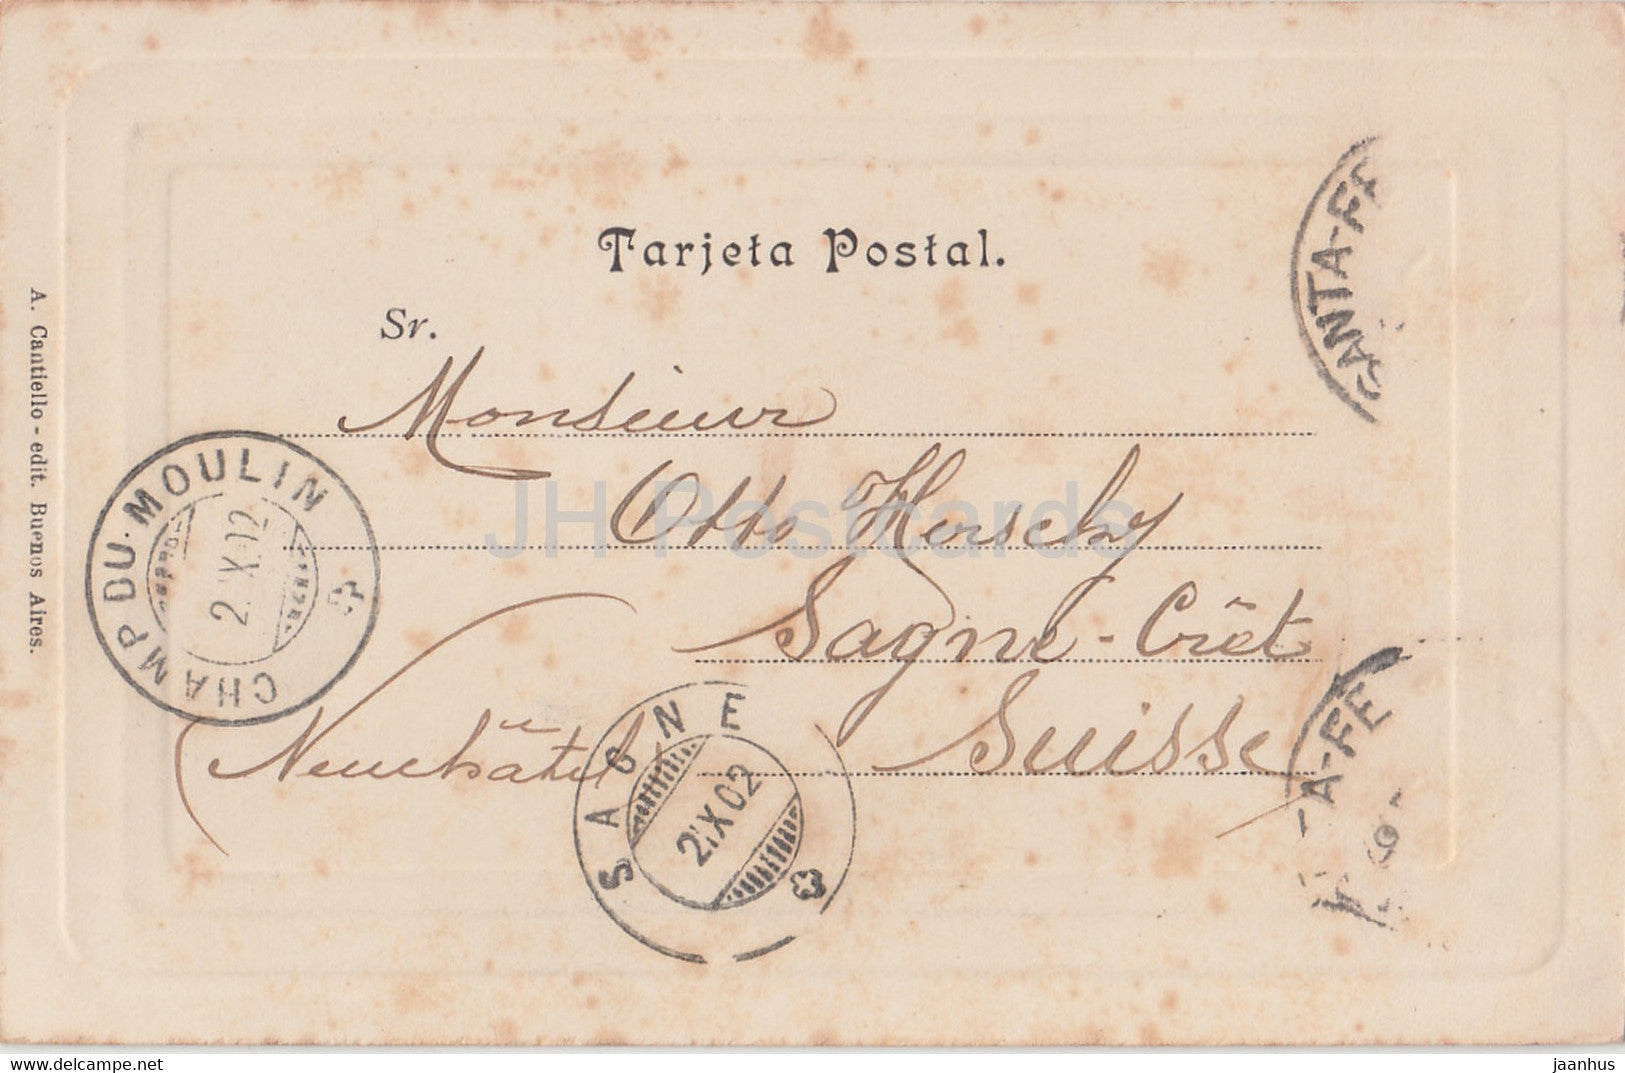 Tarjeta Postal.
Sr.
Monsieur
Otto Herschy
Sagne-Crêt
Suisse
(Neuchâtel)
A. Cantiello - edit. Buenos Aires.
CHAMP DU-MOULIN
2 X 02
SAGNE
2 X 02
SANTA-FE
A-FE
JH Postcards
www.delcampe.net
jaanhus